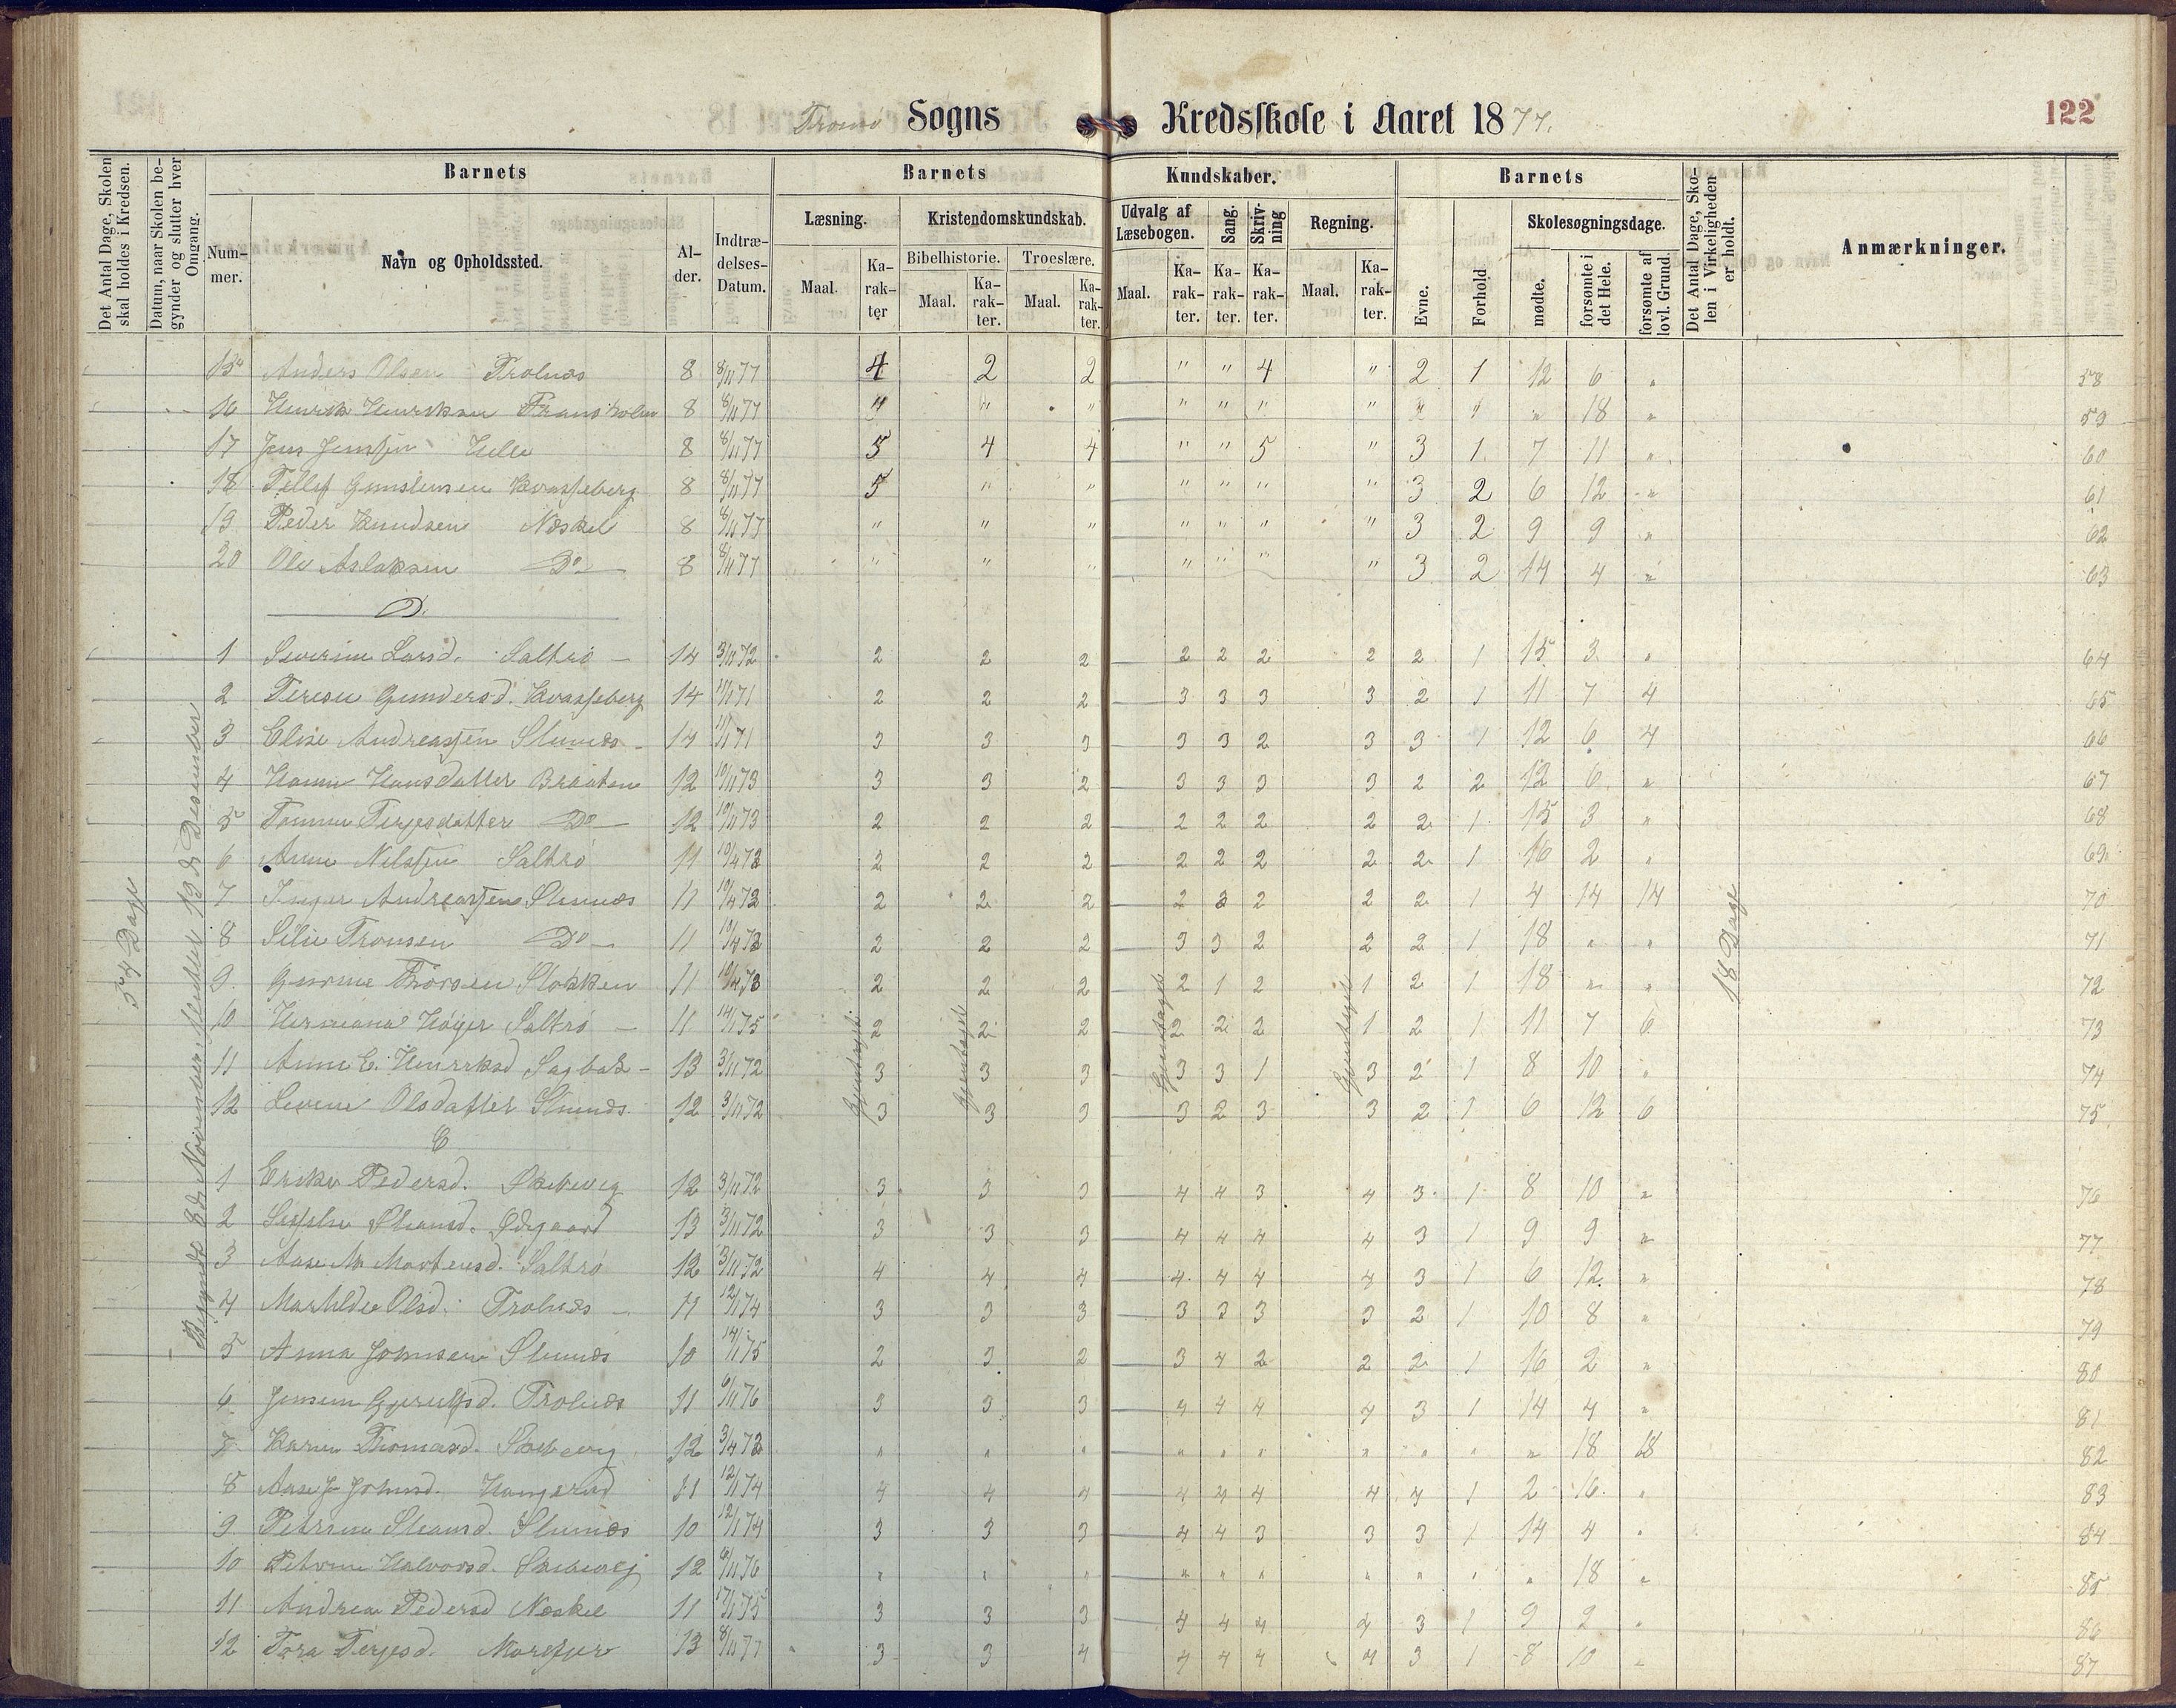 Tromø Sogns Kredsskole i Aaret 1877.
122
Det Antal Dage, Skolen skal holdes i Kredsen.
Datum, naar Skolen begynder og slutter hver Omgang.
Barnets
Nummer.
Navn og Opholdssted.
Alder.
Indtrædelses-Datum.
Barnets Kundskaber.
Læsning.
Maal.
Karakter
Kristendomskundskab.
Bibelhistorie.
Maal.
Karakter.
Troeslære.
Maal.
Karakter.
Udvalg af Læsebogen.
Maal.
Karakter.
Sang.
Karakter.
Skrivning
Karakter.
Regning.
Maal.
Karakter.
Barnets
Evne.
Forhold
Skolesøgningsdage.
mødte.
forsømte i det Hele.
forsømte af lovl. Grund.
Det Antal Dage, Skolen i Virkeligheden er holdt.
Anmærkninger.
54 Dage
Begyndt 8de November, sluttet 13de December
18 Dage
15 Anders Olsen Trolnæs 8 8/11 77 4 2 2 " " 4 " 2 1 12 6 " 58
16 Henrik Henriksen 8 8/11 77 " " " " " " " " " " 18 " 59
17 Jens Jensen Helle 8 8/11 77 5 4 4 " " 5 " 3 1 7 11 " 60
18 Tellef Gunslensen Kvasseberg 8 8/11 77 5 " " " " " " 3 2 6 12 " 61
19 Peder Knudsen Næskil 8 8/11 77 " " " " " " " 3 2 9 9 " 62
20 Ole Aslaksen Do 8 8/11 77 " " " " " " " 3 2 14 4 " 63
D.
1 Severine Larsd. Saltrø 14 3/11 72 2 2 2 2 2 2 2 2 1 15 3 " 64
2 Terese Gundersd. Kvasseberg 14 71 2 2 2 3 3 3 3 2 1 11 7 4 65
3 Elise Andreassen Stumæs 14 71 3 3 3 3 3 2 3 3 1 12 6 4 66
4 Hanne Hansdatter Braaten 12 10/11 73 3 3 2 3 3 3 3 2 2 12 6 " 67
5 Tomine Terjesdatter Do 12 10/11 73 2 2 2 2 2 2 2 2 1 15 3 " 68
6 Anne Nilssen Saltrø 11 10/4 73 2 2 2 2 2 2 2 2 1 16 2 " 69
7 Inger Andreassen Stumæs 11 10/4 73 2 2 2 2 3 2 2 2 1 4 14 14 70
8 Silie Tronsen Do 11 10/4 73 2 2 2 3 3 2 2 2 1 18 " " 71
9 Gurine Thorsen Stokken 11 10/4 73 2 2 2 2 1 2 1 2 1 18 " " 72
10 Hermana Høyer Saltrø 11 14/1 75 2 2 2 2 2 2 1 2 1 11 7 6 73
11 Anne E. Henriksd Sagbak 13 3/11 72 3 3 3 3 3 1 3 2 1 8 10 " 74
12 Levine Olsdatter Stumæs 12 3/11 72 3 3 3 3 2 3 3 2 1 6 12 6 75
E
1 Erike Pedersd. Skibevig 12 3/11 72 3 3 3 4 4 3 4 3 1 8 10 " 76
2 Sisselse Steansd. Ødegaard 13 3/11 72 3 3 3 4 4 4 4 3 1 9 9 " 77
3 Aase M Mortensd. Saltrø 12 3/11 72 4 4 4 4 4 4 4 3 1 6 12 " 78
4 Marhilde Olsd. Trolnæs 11 12/1 74 3 3 3 3 3 3 3 2 1 10 8 " 79
5 Anna Johnsen Stumæs 10 14/1 75 2 3 2 3 4 2 2 2 1 16 2 " 80
6 Jensine Trolnæs 11 6/11 76 3 3 3 4 4 4 4 3 1 14 4 " 81
7 Karen Thomasd. Skibevig 12 3/4 73 " " " " " " " " " " 18 18 82
8 Aase J Johnsd. Hangerød 11 12/1 74 4 4 4 4 4 4 4 4 1 2 16 " 83
9 Petrine Steansd. Stumæs 10 12/1 74 3 3 3 4 4 3 3 3 1 14 4 " 84
10 Petrine Halvorsd. Skibevig 12 6/11 76 " " " " " " " " " " 18 " 85
11 Andrea Pedersd Næskil 11 75 3 3 3 4 4 4 4 3 1 9 9 " 86
12 Tora Terjesd. Marefjer 13 8/11 77 3 3 4 4 4 4 4 3 1 8 10 " 87
Gjentaget
Gjentaget
Gjentaget
Gjentaget